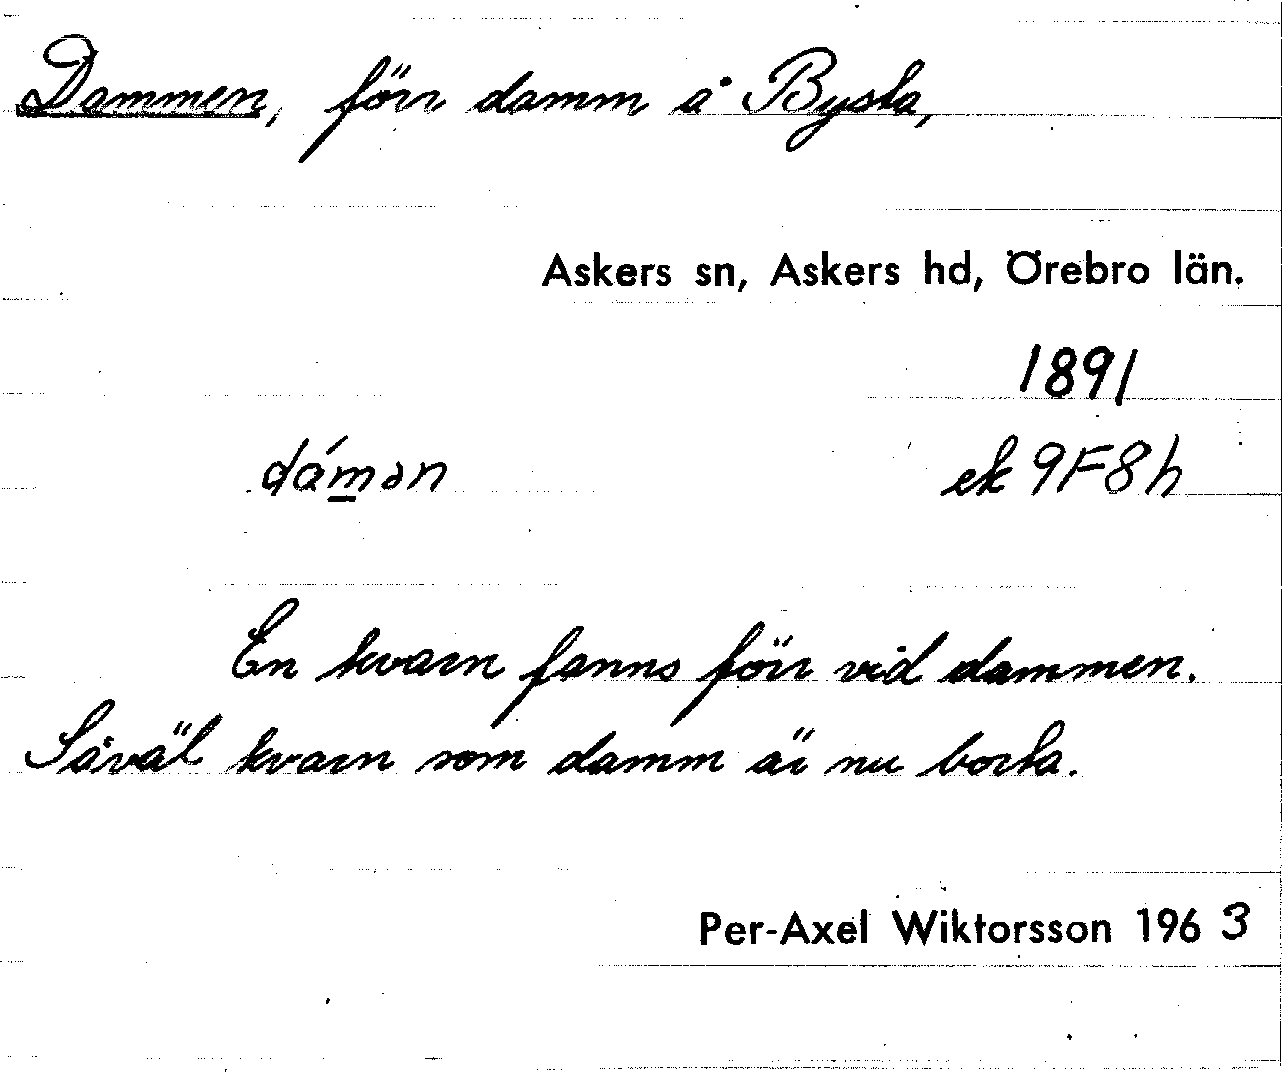 Dammen, förr damm å Bysta,
Askers sn, Askers hd, Örebro län.
1891
dám̲ən
ek 9F8h
En kvarn fanns förr vid dammen.
Såväl kvarn som damm är nu borta.
Per-Axel Wiktorsson 1963